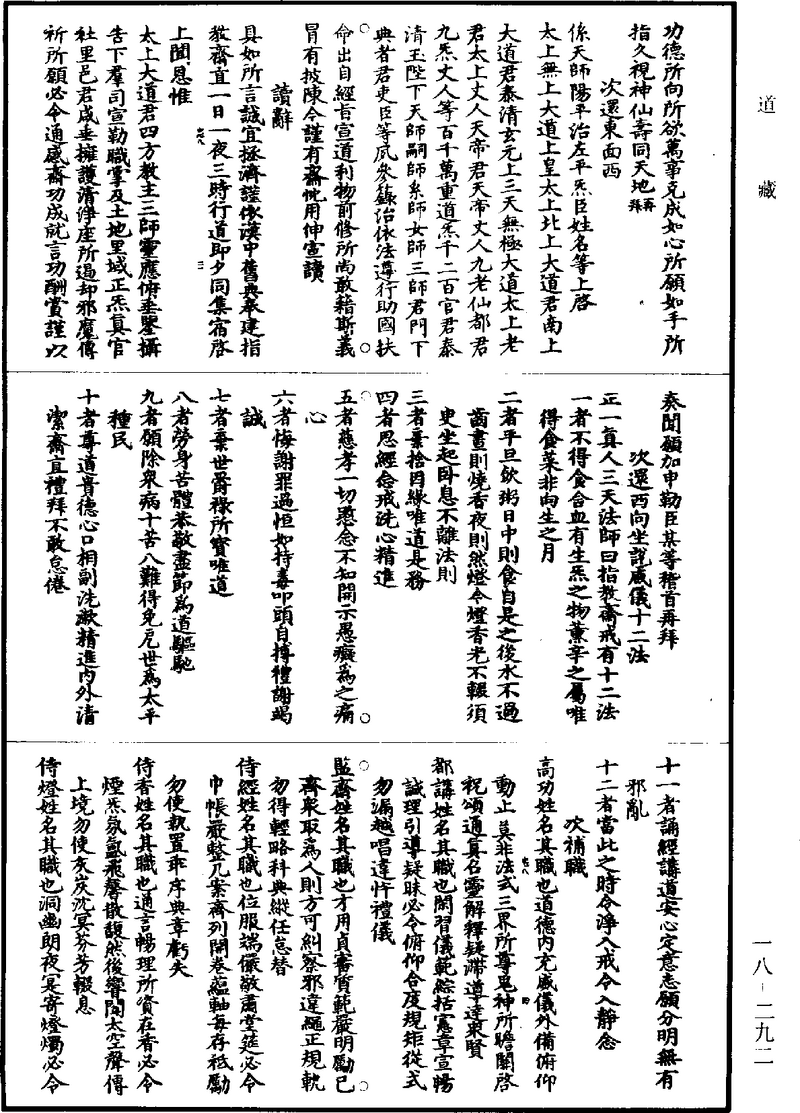 道藏
功德所向所欲萬事克成如心所願如手所
指久視神仙壽同天地再拜
次還東面西
係天師陽平治左平炁臣姓名等上啓
太上無上大道上皇太上北上大道君南上
大道君泰清玄元上三天無極大道太上老
君太上丈人天帝君天帝丈人九老仙都君
九炁丈人等百千萬重道炁千二百官君泰
清玉陛下天師嗣師系師女師三師君門下
典者君吏臣等夙參籙治依法遵行助國扶
命出自經旨宣道利物前修所尚敢藉斯義
冒有披陳今謹有齋忱用伸宣讀
讀辭
具如所言誠宜拯濟謹依漢中舊典奉建指
教齋直一日一夜三時行道即夕同集宿啓
上聞恩惟
太上大道君四方教主三師靈應俯垂鑒攝
告下羣司宣勒職掌及土地里域正炁真官
社里邑君咸垂擁護清淨座所遏却邪魔傳
祈所願必令通感齋功成就言功酬賞謹以
奏聞願加申勒臣某等稽首再拜
次還西向坐說威儀十二法
正一真人三天法師曰指教齋戒有十二法
一者不得食含血有生炁之物薰辛之屬唯
得食菜非向生之月
二者平旦飲粥日中則食自是之後水不過
齒晝則燒香夜則然燈令燈香光不輟須
史坐起臥息不離法則
三者棄捨因緣唯道是務
四者思經念戒洗心精進
五者慈孝一切愍念不知開示愚癡為之痛
心
六者悔謝罪過恒如持毒叩頭自搏禮謝竭
誠
七者棄世爵祿所寶唯道
八者勞身苦體恭敬盡節為道驅馳
九者願除衆病十苦八難得免厄世為太平
種民
十者尊道貴德心口相副洗漱精進內外清
潔齋直禮拜不敢怠倦
十一者誦經講道安心定意志願分明無有
邪亂
十二者當此之時令淨入戒令入靜念
次補職
高功姓名其職也道德內充威儀外備俯仰
動止莫非法式三界所尊鬼神所瞻關啓
祝頌通真召靈解釋疑滯導達衆賢
都講姓名其職也閑習儀範綜括憲章宣暢
誠理引導疑昧必令俯仰合度規矩從式
勿漏越唱違忤禮儀
監齋姓名其職也才用貞審質範嚴明勵己
齊衆取為人則方可糾察邪違繩正規軌
勿得輕略科典縱任怠替
侍經姓名其職也位服端儼敬肅堂筵必令
巾帳嚴整几案齊列開卷蘊軸每存祗勵
勿使執置乖序典章虧失
侍香姓名其職也通言暢理所資在香必令
煙炁氛氳飛馨散馥然後響聞太空聲傳
上境勿使灰炭沈冥芬芳輟息
侍燈姓名其職也洞幽朗夜寔寄燈燭必令
一八-二九二